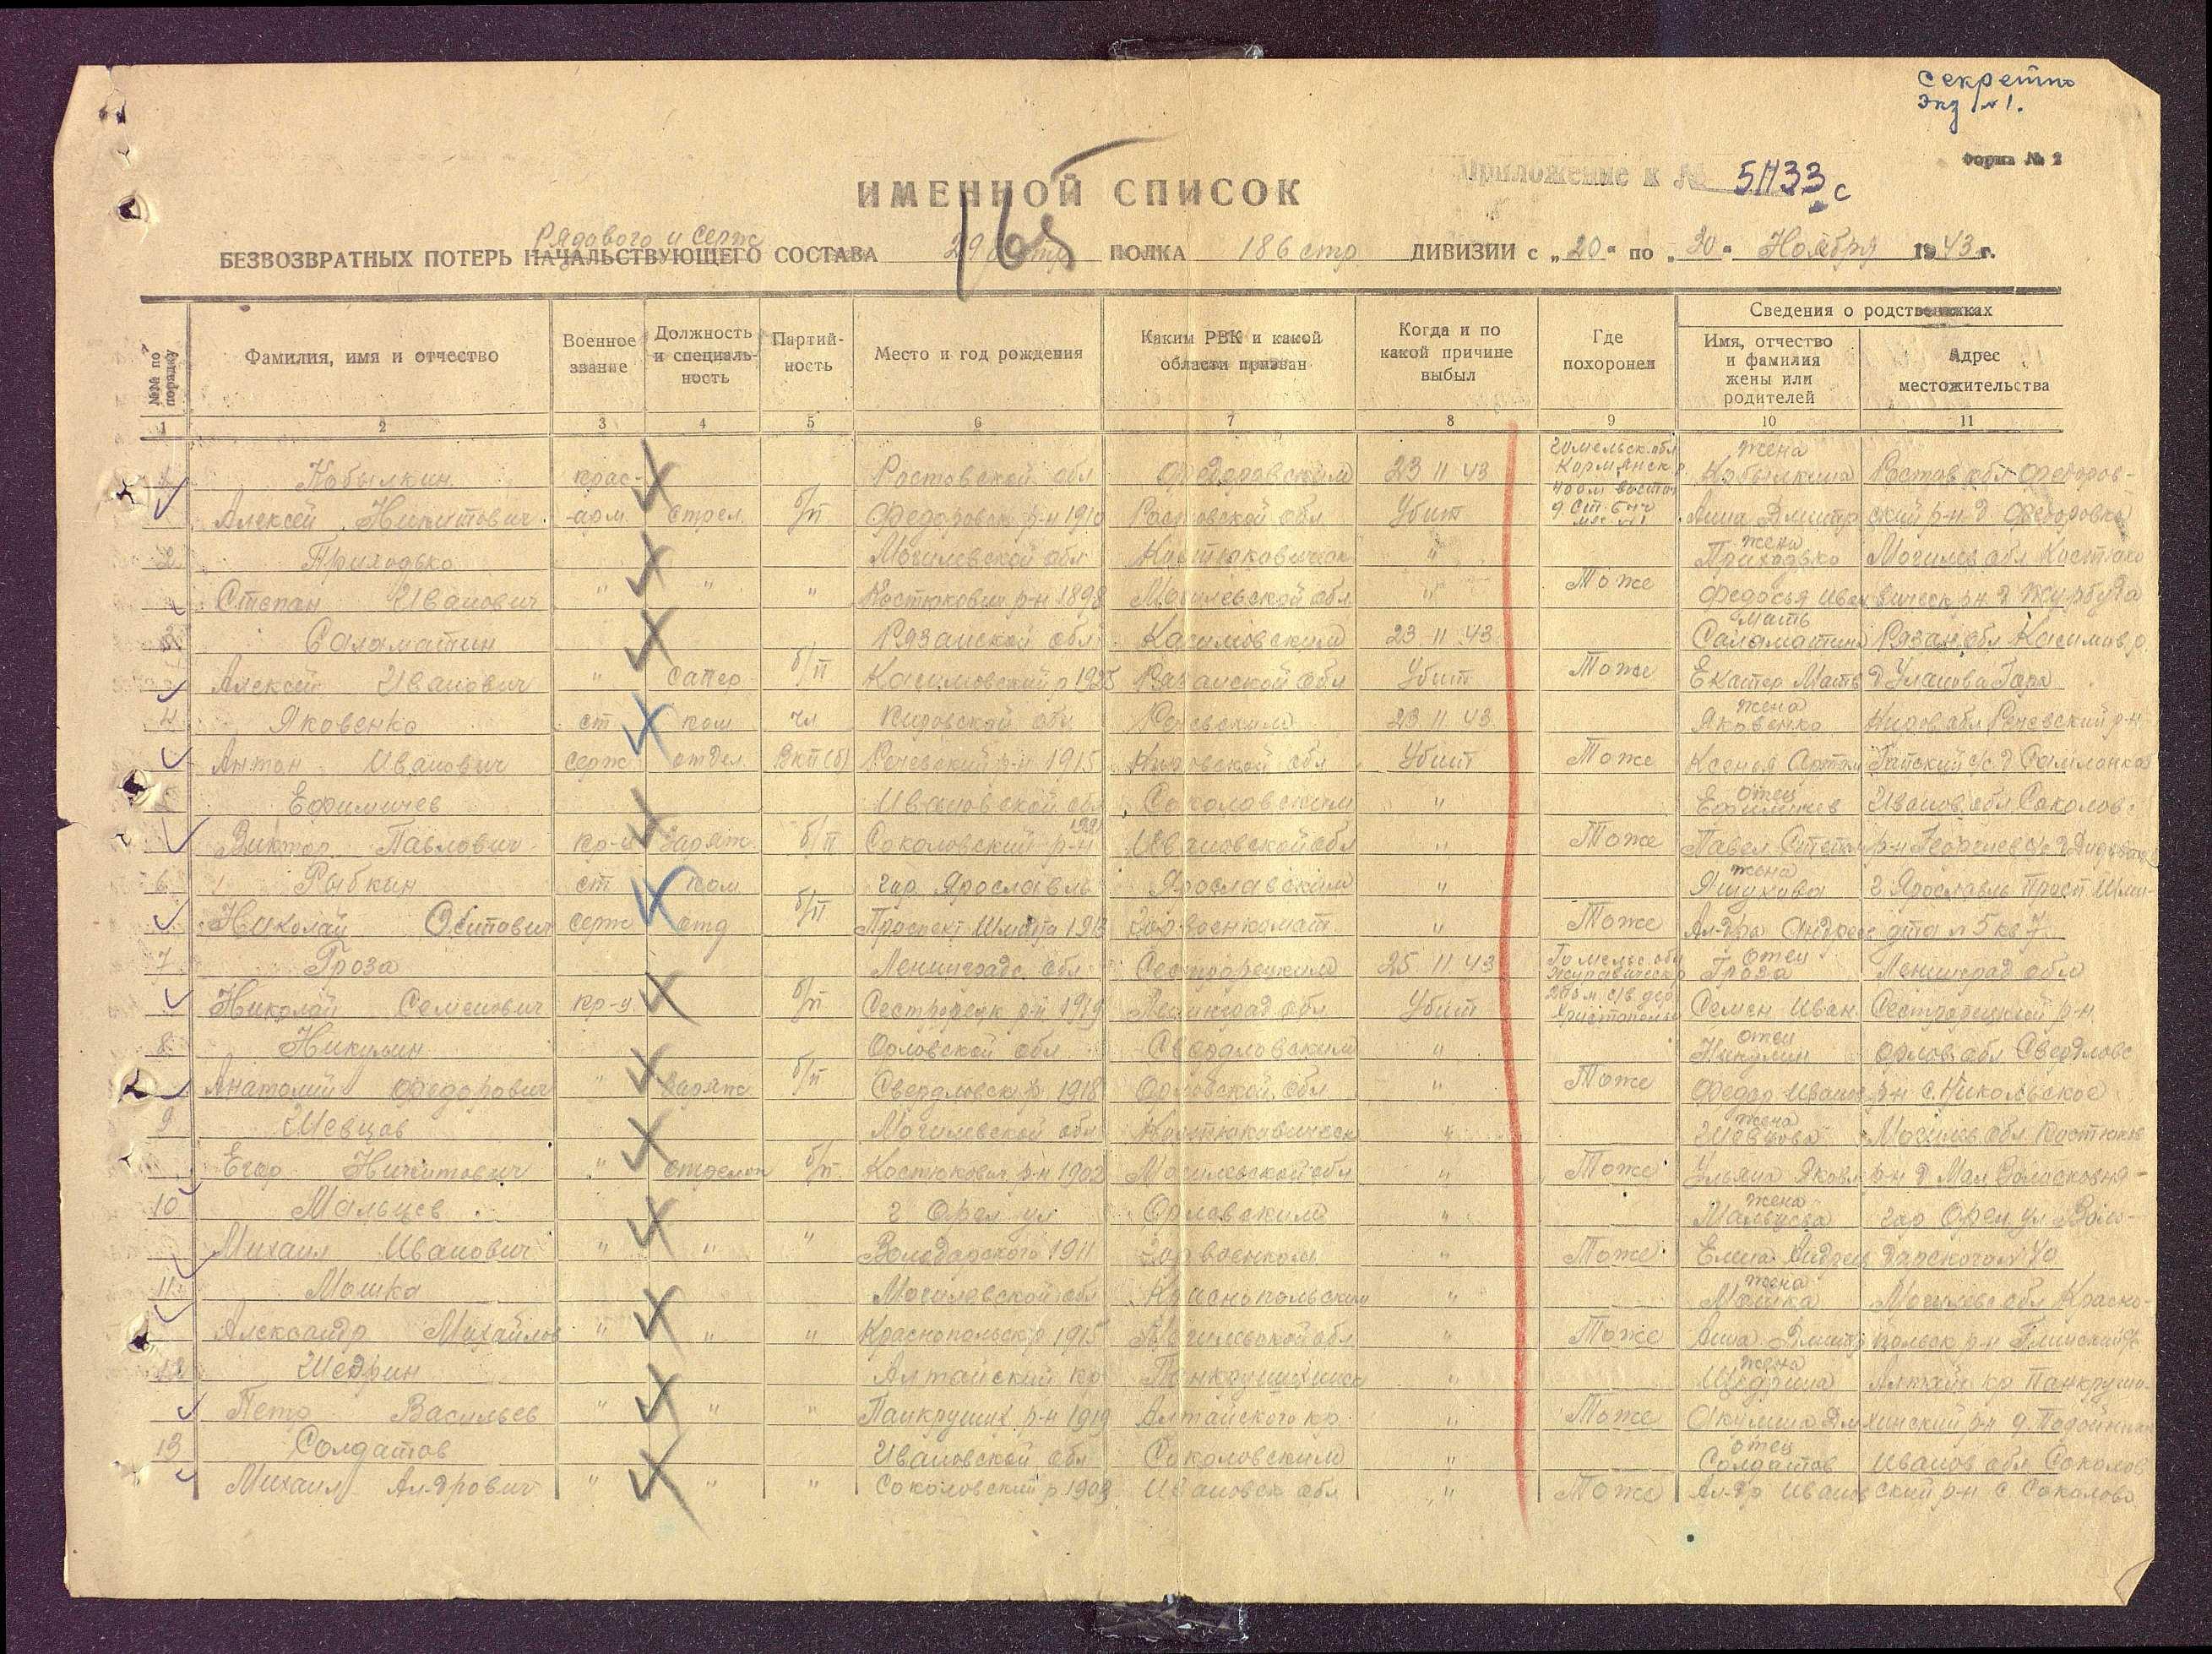 Секретно
Экз №1.
Форма № 2
Приложение к № 51133с
ИМЕННОЙ СПИСОК
165
рядового и серж
БЕЗВОЗВРАТНЫХ ПОТЕРЬ НАЧАЛЬСТВУЮЩЕГО СОСТАВА 29 стр ПОЛКА 186 стр ДИВИЗИИ с „20" по „30" Ноября 1943 г.
№№ по порядку
Фамилия, имя и отчество
Военное звание
Должность и специаль-ность
Партий-ность
Место и год рождения
Каким РВК и какой области призван
Когда и по какой причине выбыл
Где похоронен
Сведения о родственниках
Имя, отчество и фамилия жены или родителей
Адрес местожительства
1 2 3 4 5 6 7 8 9 10 11
Гомельск.обл жена
1 Кобылкин крас- Ростовской обл Федоровским 23 11 43 Кормянск р Кобылкина Ростов обл Федоров-
400м восточ
Алексей Никитович -арм стрел б/п Федоровск р-н 1910 Ростовской обл Убит Анна Дмитр ский р-н д Федоровка
жена
2 Приходько Могилевской обл Костюкович " Приходько Могилев обл Костюко
Степан Иванович " " " Костюкович р-н 1898 Могилевской обл " Тоже Федосья Иван вическ р-н д Журбуда
мать
3 Саламатин Рязанской обл Касимовским 23 11 43 Саламатина Рязан обл Касимов р
Алексей Иванович " сапер б/п Касимовский р 1925 Рязанской обл Убит Тоже Екатер Матв д Уланова Гора
жена
4 Яковенко ст ком чл Кировской обл 23 11 43 Яковенко Киров обл
Антон Иванович серж отдел ВКП(б) 1915 Кировской обл Убит Тоже Ксения Артам
отец
5 Ефимичев Ивановской обл Соколовским " Ефимичев Иванов обл Соколов-
Виктор Павлович кр-ц заряж б/п Соколовский р-н 1921 Ивановской обл " Тоже Павел Степан
жена
6 Рыбкин ст ком гор Ярославль Ярославским " г. Ярославль Просп Шми-
Николай Осипович серж отд б/п Проспект Шмидта 1913 Горвоенкомат " Тоже Ал-дра Андрее дта д 5 кв 7
отец
7 Гроза Ленинградс. обл Сестрорецким 25 11 43 Гомельс. обл Гроза Ленинград обл
Николай Семенович кр-ц б/п Сестрорецк р-н 1919 Ленинград обл Убит Семен Иван Сестрорецкий р-н
отец
8 Никулин Орловской обл Свердловским " Никулин Орлов. обл Свердловс
Анатолий Федорович " заряж б/п Свердловск р 1918 Орловской обл " Тоже Федор Иванов р-н с. Никольское
жена
9 Шевцов Могилевской обл Костюковическ " Шевцова Могилев обл Костюков
Егор Никитович " б/п Костюкович р-н 1902 Могилевской обл " Тоже Ульяна Яковл р-н д Мал
жена
10 Мальцев г Орел ул Орловским " Мальцева гор Орел ул Воло-
Михаил Иванович " " " Володарского 1911 Горвоенком " Тоже Елена Андреев дарского 40
жена
11 Мошка Могилевской обл Краснопольским " Мошка Могилевс обл Красно-
Александр Михайлов " " " Краснопольск р 1915 Могилевской обл " Тоже Анна Дмитр польск р-н
жена
12 Щедрин Алтайский кр Панкрушихинск " Щедрина Алтайс кр Панкруши-
Петр Васильев " " " Панкруших р-н 1919 Алтайского кр " Тоже Акулина Дм хинский р-н
отец
13 Солдатов Ивановской обл Соколовским " Солдатов Иванов обл Соколов
Михаил Ал-дрович " " " Соколовский р 1908 Ивановск обл " Тоже Ал-др Иванов ский р-н с Соколово